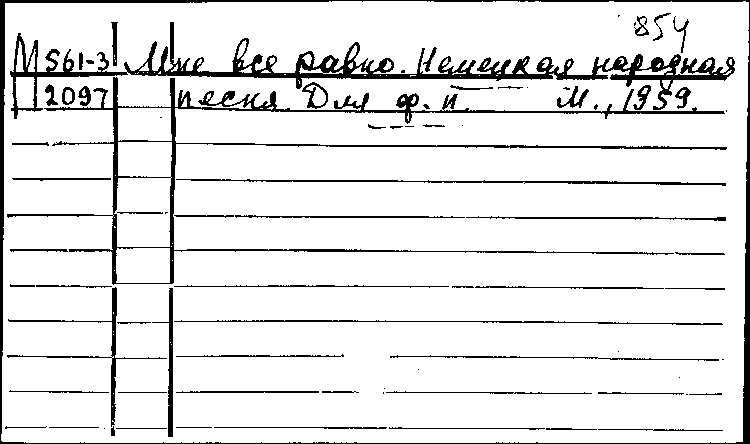 854
М 561-3 Мне все равно. Немецкая народная
2097 песня. Для ф.п. М., 1959.